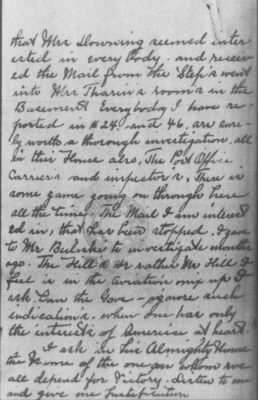 that Mrs Downing seemed inter
ested in everybody. and receiv
ed the Mail from the Step's went
into Mrs Tharin's rooms in the
Basement Everybody I have re-
ported in #24. and 46, are sure-
ly worth a through investigation. all
in this House also, The Post Office
Carriers and inspectors, There is
some game going on through here
all the time. The Mail I am interest
ed in, that has been stopped, I gave
to Mr to investigate months
ago. The Hill's or rather Mr Hill I
feel is in the aviation mix up I
ask Can the Gov- ignore such
indications, when One has only
the interests of America at heart
I ask in his Almighty Name
the Name of the one on whom we
all depend for Victory. listen to me
and give me Justification